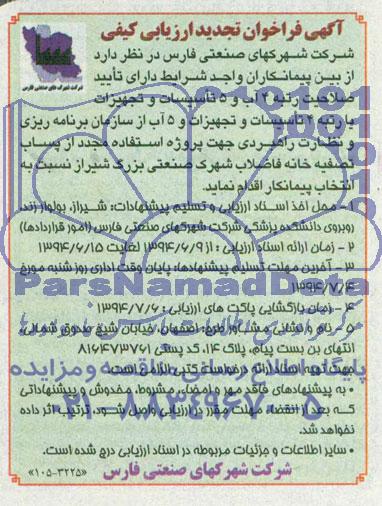 آگهی فراخوان تجدید ارزیابی کیفی
شرکت شهرکهای صنعتی فارس در نظر دارد
از بین پیمانکاران واجد شرایط دارای تأیید
صلاحیت رتبه ۳ آب و ۵ تأسیسات و تجهیزات
یا رتبه ۴ تأسیسات و تجهیزات و ۵ آب از سازمان برنامه ریزی
و نظارت راهبردی جهت پروژه استفاده مجدد از پساب
تصفیه خانه فاضلاب شهرک صنعتی بزرگ شیراز نسبت به
انتخاب پیمانکار اقدام نماید.
۱- محل اخذ اسناد ارزیابی و تسلیم پیشنهادات: شیراز، بولوار زند،
روبروی دانشکده پزشکی شرکت شهرکهای صنعتی فارس (امور قراردادها)
۲ - زمان ارائه اسناد ارزیابی : از ۱۳۹۴/۶/۹ لغایت ۱۳۹۴/۶/۱۵
۳ - آخرین مهلت تسلیم پیشنهادها: پایان وقت اداری روز شنبه مورخ
۱۳۹۴/۷/۴
۴ - زمان بازگشایی پاکت های ارزیابی : ۱۳۹۴/۷/۶
۵ - نام و نشانی مشاور طرح: اصفهان، خیابان شیخ صدوق شمالی،
انتهای بن بست پیام، پلاک ۱۴، کد پستی ۸۱۶۴۷۳۷۶۱
جهت تهیه اسناد ارائه درخواست کتبی الزامی است.
• به پیشنهادهای فاقد مهر و امضا، مشروط، مخدوش و پیشنهاداتی
که بعد از انقضاء مهلت مقرر در ارزیابی واصل شود، ترتیب اثر داده
نخواهد شد.
• سایر اطلاعات و جزئیات مربوطه در اسناد ارزیابی درج شده است.
شرکت شهرکهای صنعتی فارس
«۱۰۵-۳۲۲۵»
شرکت شهرک های صنعتی فارس
ParsNamadData
۰۲۱-۸۸۳۴۹۶۷۰-۵